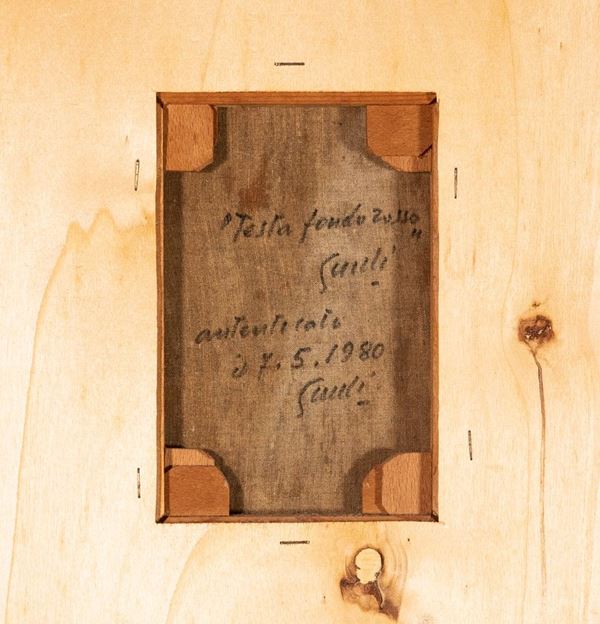 "Testa fondo rosso"
Guidi
autenticato
il 7.5.1980
Guidi